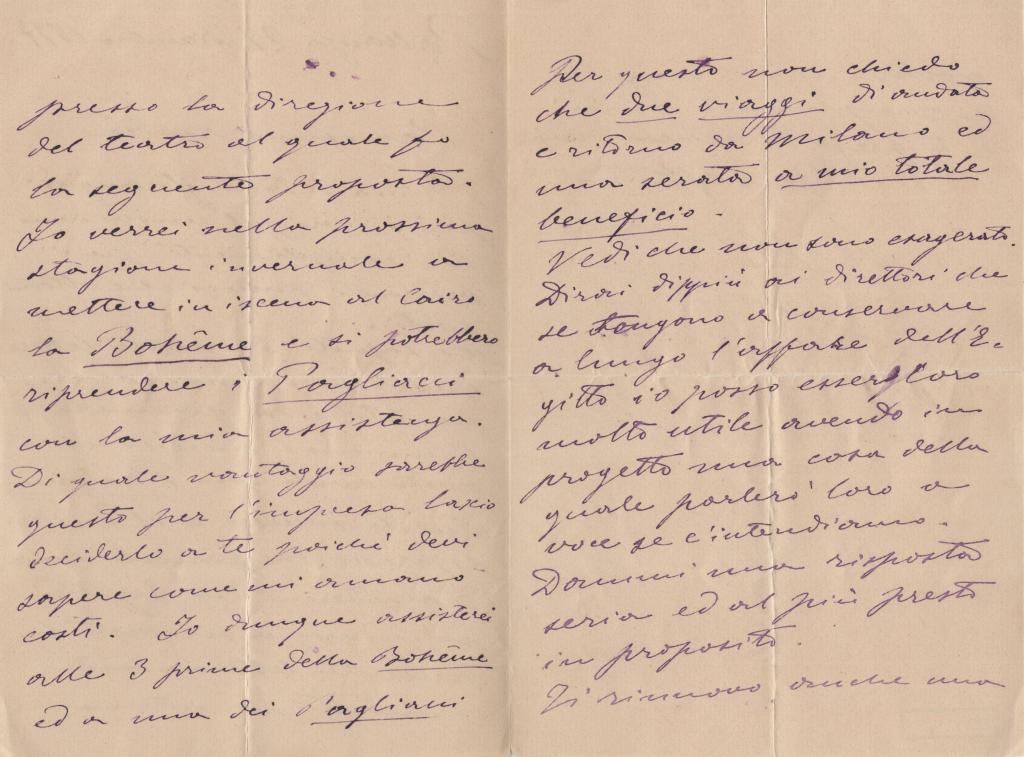 presso la direzione
del teatro al quale fo
la seguente proposta.
Io verrei nella prossima
stagione invernale a
mettere in iscena al Cairo
la Bohême e si potrebbero
riprendere i Pagliacci
con la mia assistenza.
Di quale vantaggio sarebbe
questo per l'impresa lascio
deciderlo a te poiché devi
sapere come mi amano
costì. Io dunque assisterei
alle 3 prime della Bohême
ed a una dei Pagliacci
Per questo non chiedo
che due viaggi di andata
e ritorno da Milano ed
una serata a mio totale
beneficio.
Vedi che non sono esagerato.
Dirai dippiù ai direttori che
se tengono a conservare
a lungo l'affare dell'E-
gitto io posso esser loro
molto utile avendo in
progetto una cosa della
quale parlerò loro a
voce se c'intendiamo.
Dammi una risposta
seria ed al più presto
in proposito.
Ti rinnovo anche una